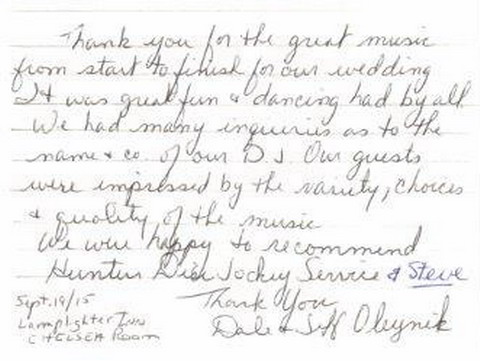 Thank you for the great music
from start to finish for our wedding
It was great fun & dancing had by all.
We had many inquiries as to the
name & co. of our D.J. Our guests
were impressed by the variety, choices
& quality of the music
We were happy to recommend
Hunters Disc Jockey Service & Steve
Thank You
Dale & Jeff Oleynik
Sept. 19/15
Lamplighter Inn
CHELSEA Room